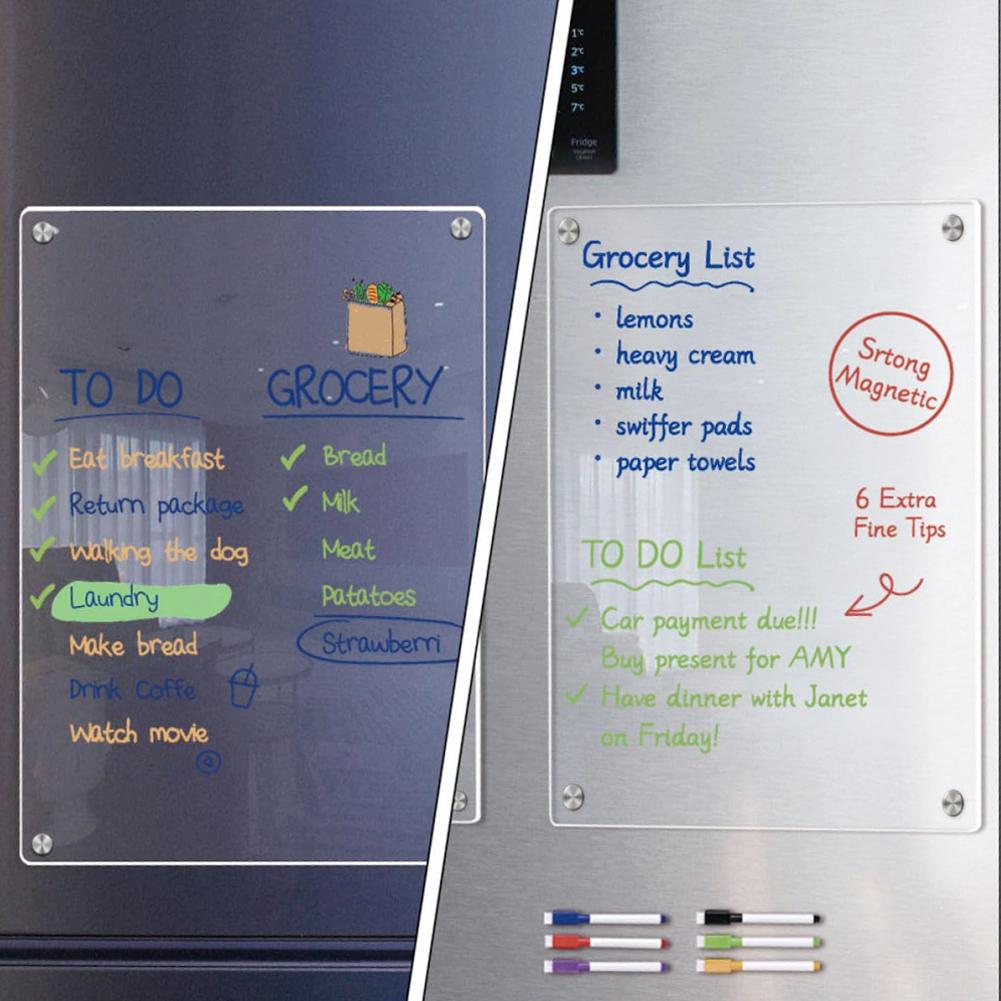 TO DO
Eat breakfast
Return package
Walking the dog
Laundry
Make bread
Drink Coffe
Watch movie
GROCERY
Bread
Milk
Meat
Patatoes
Strawberri
1°C
2°C
3°C
5°C
7°C
Fridge
Grocery List
• lemons
• heavy cream
• milk
• swiffer pads
• paper towels
Srtong
Magnetic
6 Extra
Fine Tips
TO DO List
Car payment due!!!
Buy present for AMY
Have dinner with Janet
on Friday!